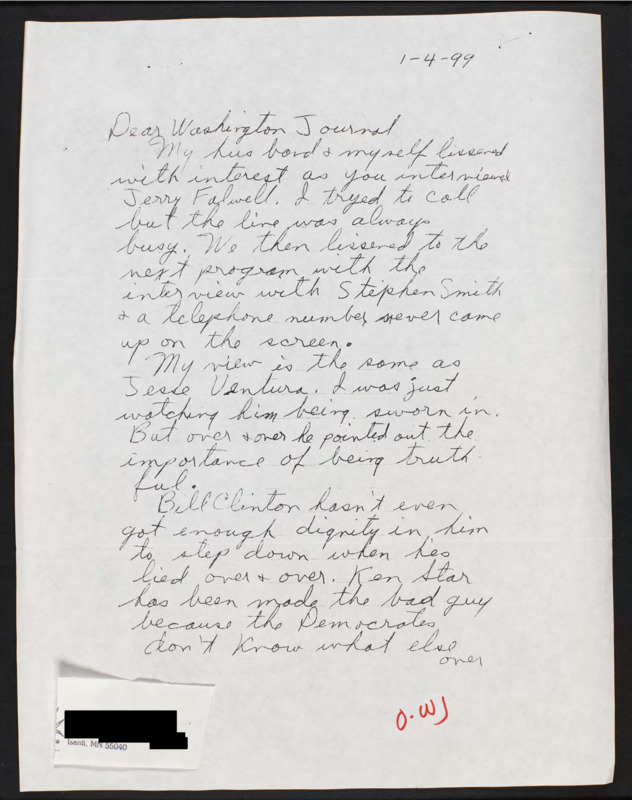 1-4-99
Dear Washington Journal
My hus band & myself lissened
with interest as you interviewed
Jerry Falwell. I tryed to call
but the line was always
busy. We then lissened to the
next program with the
interview with Stephen Smith
& a telephone number never came
up on the screen.
My view is the same as
Jesse Ventura. I was just
watching him being sworn in.
But over & over he pointed out the
importance of being truth
ful.
Bill Clinton hasn't even
got enough dignity in him
to step down when hes
lied over & over. Ken Star
has been made the bad guy
because the Democrates
don't know what else
over
O.WJ
Isanti, MN 55040